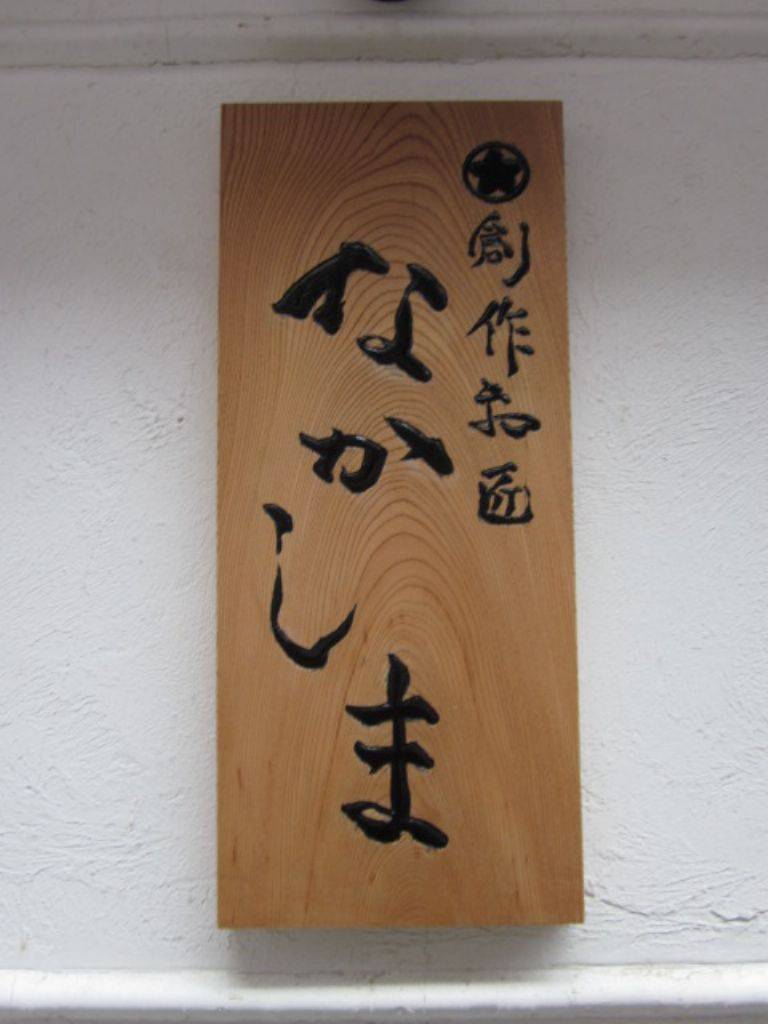 創作お匠
なかしま